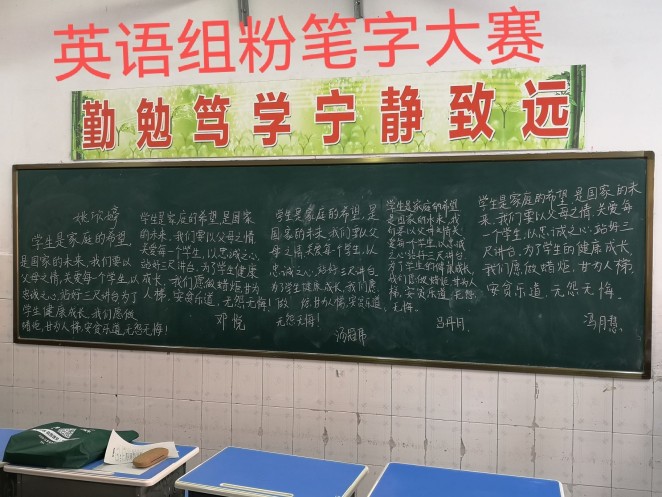 英语组粉笔字大赛
勤勉笃学宁静致远
姚欣婷
学生是家庭的希望
是国家的未来,我们要以
父母之情,关爱每个学生,以
忠诚之心,站好三尺讲台,为了
学生健康成长,我们愿做
蜡炬,甘为人梯,安贫乐道,无怨无悔!
学生是家庭的希望,是国家
的未来,我们要以父母之情,
关爱每个学生,以忠诚之心,
站好三尺讲台,为了学生健康
成长,我们愿做蜡炬,甘为
人梯,安贫乐道,无怨无悔!
邓悦
学生是家庭的希望,是
国家的未来,我们要以父
母之情,关爱每个学生,以
忠诚之心,站好三尺讲台,
为了学生健康成长,我们愿
做蜡炬,甘为人梯,安贫乐道,
无怨无悔!
学生是家庭的希望
是国家的未来,我
们要以父母之情,关
爱每个学生,以忠诚
之心,站好三尺讲台,
为了学生的健康成长,
我们愿做蜡炬,甘为人
梯,安贫乐道,无怨
无悔。
吕丹丹
学生是家庭的希望,是国家的未
来,我们要以父母之情,关爱每
个学生,以忠诚之心,站好三
尺讲台,为了学生的健康成长,
我们愿做蜡炬,甘为人梯,
安贫乐道,无怨无悔。
冯月慧